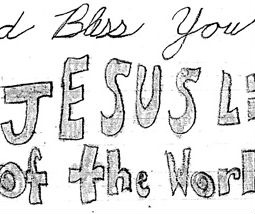 d Bless You
JESUS L
of the Worl